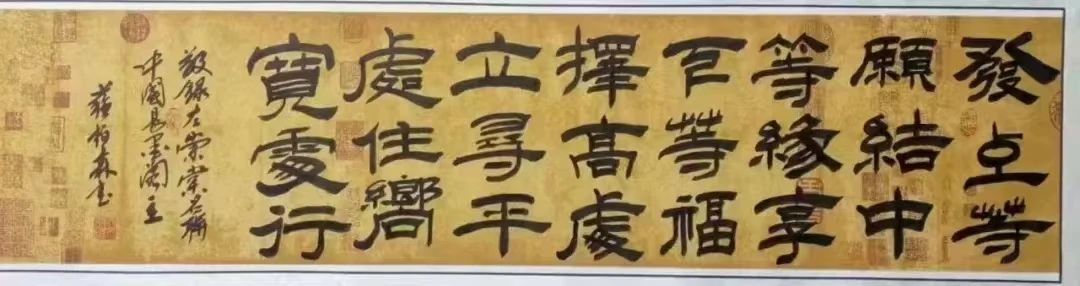 發上等
願結中
等緣享
下等福
擇高處
立尋平
處住嚮
寬處行
敬録左宗棠名聯
中國墨阁主
柏森书